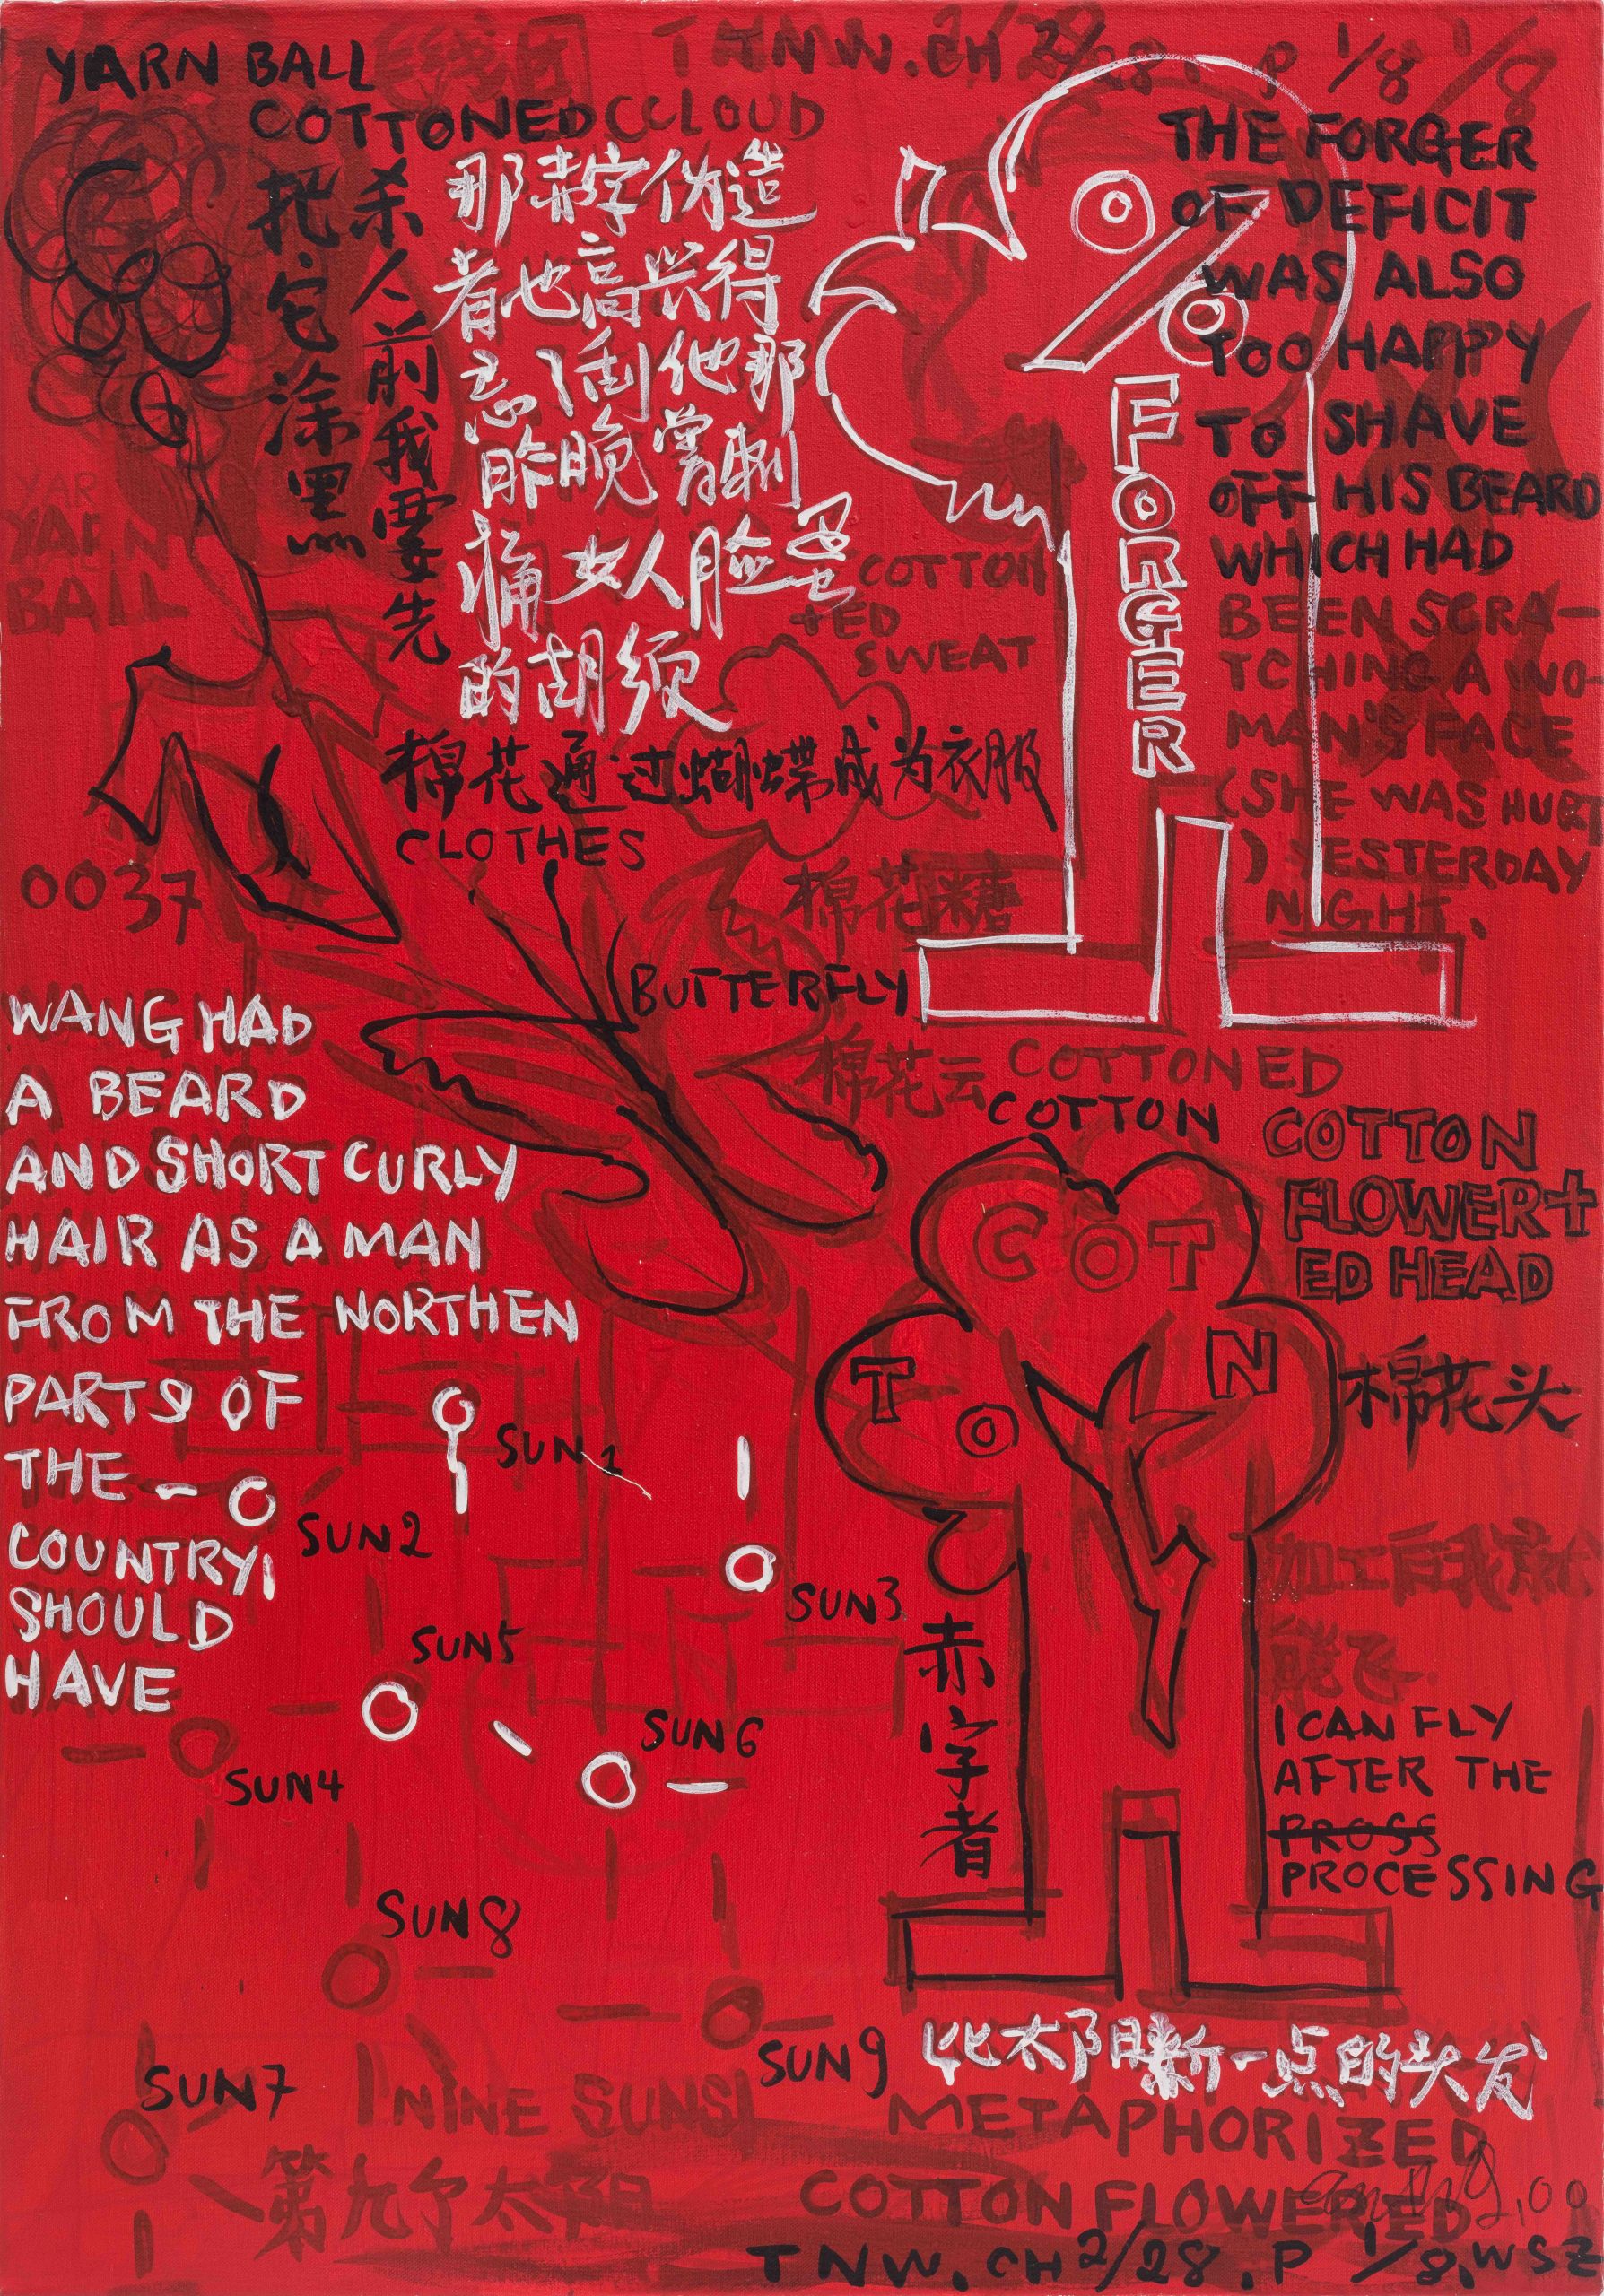 YARN BALL
线团
TNNW.CH 2/28. P 1/8 1/8
COTTONED CCLOUD
杀人前我要先
把它涂黑
那赤字伪造
者也高兴得
忘了刮他那
昨晚曾刺
痛女人脸蛋
的胡须
THE FORGER
OF DEFICIT
WAS ALSO
TOO HAPPY
TO SHAVE
OFF HIS BEARD
WHICH HAD
BEEN SCRA-
TCHING A WO-
MAN'S FACE
(SHE WAS HURT
) YESTERDAY
NIGHT.
%
FORGER
YAR
YARN
BALL
COTTON
+ED
SWEAT
棉花通过蝴蝶成为衣服
CLOTHES
棉花糖
0037
BUTTERFLY
棉花云 COTTONED
COTTON
COTTON
FLOWER+
ED HEAD
棉花头
COT
TON
WANG HAD
A BEARD
AND SHORT CURLY
HAIR AS A MAN
FROM THE NORTHEN
PARTS OF
THE
COUNTRY,
SHOULD
HAVE
SUN 1
SUN2
SUN3
SUN5
SUN6
SUN4
SUN8
SUN9
SUN7
加工后我就
能飞.
I CAN FLY
AFTER THE
PROSS
PROCESSING
赤字者
比太阳新一点的头发
NINE SUNS
第九个太阳
METAPHORIZED
COTTON FLOWERED
TNW.CH2/28.P 1/8.WSZ